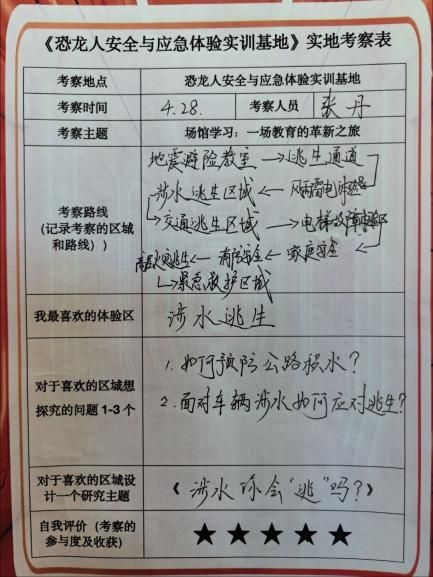 《恐龙人安全与应急体验实训基地》实地考察表
考察地点 恐龙人安全与应急体验实训基地
考察时间 4.28. 考察人员 张丹
考察主题 场馆学习：一场教育的革新之旅
考察路线
(记录考察的区域
和路线))
地震避险教室→逃生通道
涉水逃生区域←风雨雷电体验
→交通逃生区域→电梯故障体验区
高层火灾逃生←消防安全←家庭安全
→紧急救护区域
我最喜欢的体验区 涉水逃生
对于喜欢的区域想
探究的问题 1-3 个
1. 如何预防公路积水？
2. 面对车辆涉水如何应对逃生？
对于喜欢的区域设
计一个研究主题
《涉水你会“逃”吗？》
自我评价（考察的
参与度及收获）
★★★★★